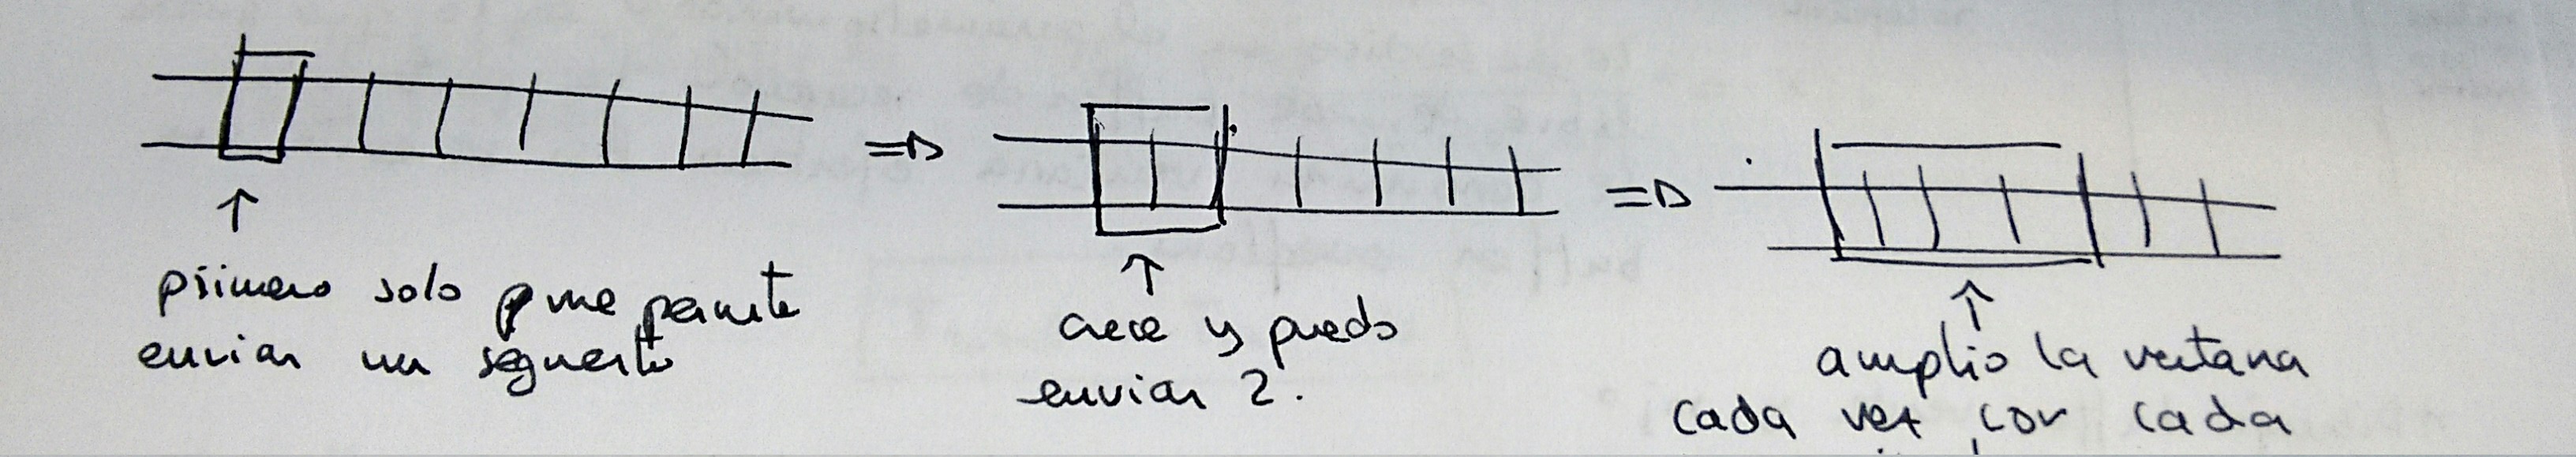 primero solo me permite
enviar un segmento
crece y puedo
enviar 2.
amplio la ventana
cada vez con cada